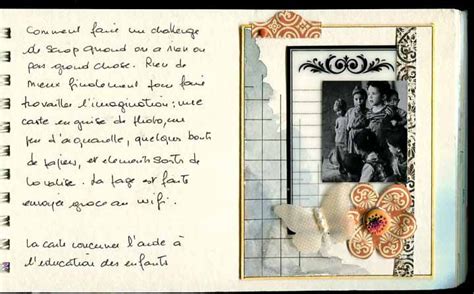 Comment faire un challenge
de scrap quand on a rien ou
pas grand chose. Rien de
mieux finalement pour faire
travailler l'imagination : une
carte en guise de photo, un
peu d'aquarelle, quelques bouts
de papiers, et elements sortis de
la valise. La page est faite
envoyée grace au wifi.
La carte concerne l'aide à
l'education des enfants